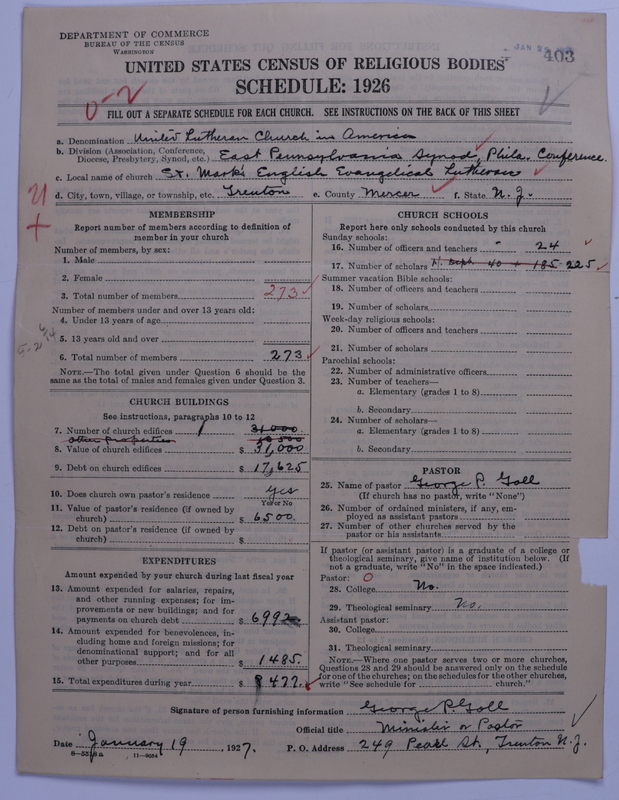 DEPARTMENT OF COMMERCE
BUREAU OF THE CENSUS
WASHINGTON
403
UNITED STATES CENSUS OF RELIGIOUS BODIES
SCHEDULE: 1926
0-2
FILL OUT A SEPARATE SCHEDULE FOR EACH CHURCH. SEE INSTRUCTIONS ON THE BACK OF THIS SHEET
a. Denomination United Lutheran Church in America
b. Division (Association, Conference, Diocese, Presbytery, Synod, etc.) East Pennsylvania Synod, Phila. Conference.
c. Local name of church St. Mark's English Evangelical Lutheran
d. City, town, village, or township, etc. Trenton e. County Mercer f. State N. J.
MEMBERSHIP
Report number of members according to definition of
member in your church
Number of members, by sex:
1. Male
2. Female
3. Total number of members 273
Number of members under and over 13 years old:
4. Under 13 years of age
5. 13 years old and over
6. Total number of members 273
NOTE.—The total given under Question 6 should be the
same as the total of males and females given under Question 3.
CHURCH BUILDINGS
See instructions, paragraphs 10 to 12
7. Number of church edifices 1 31,000
other properties 10,500
8. Value of church edifices $ 31,000
9. Debt on church edifices $ 17,625
10. Does church own pastor's residence yes
Yes or No
11. Value of pastor's residence (if owned by
church) $ 6500.
12. Debt on pastor's residence (if owned by
church) $
EXPENDITURES
Amount expended by your church during last fiscal year
13. Amount expended for salaries, repairs,
and other running expenses; for im-
provements or new buildings; and for
payments on church debt $ 6992
14. Amount expended for benevolences, in-
cluding home and foreign missions; for
denominational support; and for all
other purposes $ 1485.
15. Total expenditures during year $ 8477.
CHURCH SCHOOLS
Report here only schools conducted by this church
Sunday schools:
16. Number of officers and teachers 24
17. Number of scholars H. Dept. 40 + 185 225
Summer vacation Bible schools:
18. Number of officers and teachers
19. Number of scholars
Week-day religious schools:
20. Number of officers and teachers
21. Number of scholars
Parochial schools:
22. Number of administrative officers
23. Number of teachers—
a. Elementary (grades 1 to 8)
b. Secondary
24. Number of scholars—
a. Elementary (grades 1 to 8)
b. Secondary
PASTOR
25. Name of pastor George P. Goll
(If church has no pastor, write "None")
26. Number of ordained ministers, if any, em-
ployed as assistant pastors
27. Number of other churches served by the
pastor or his assistants
If pastor (or assistant pastor) is a graduate of a college or
theological seminary, give name of institution below. (If
not a graduate, write "No" in the space indicated.)
Pastor: 0
28. College No.
29. Theological seminary No.
Assistant pastor:
30. College
31. Theological seminary
NOTE.—Where one pastor serves two or more churches,
Questions 28 and 29 should be answered only on the schedule
for one of the churches; on the schedules for the other churches,
write "See schedule for church."
Signature of person furnishing information George P. Goll
Official title Minister or Pastor
Date January 19, 1927. P. O. Address 249 Pearl St., Trenton N. J.
8-5518a 11-9034